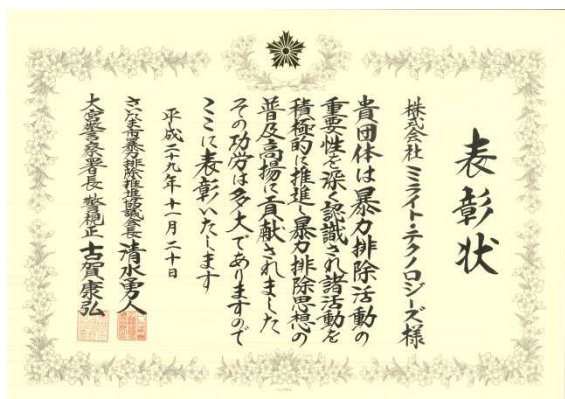 表彰状
株式会社 ミライト・テクノロジーズ様
貴団体は暴力排除活動の
重要性を深く認識され諸活動を
積極的に推進し暴力排除思想の
普及高揚に貢献されました
その功労は多大でありますので
ここに表彰いたします
平成二十九年十一月二十日
さいたま市暴力排除推進協議会長 清水勇人
大宮警察署長 警視正 古賀康弘